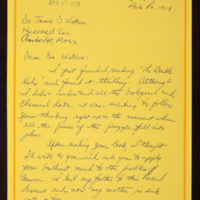 Dr. James D. Watson
Cambridge, Mass
Dear Dr. Watson:
I just finished reading "The Double
Helix" and found it thrilling. Although
I didn't understand all the biological and
chemical data, it was exciting to follow
your thinking right up to the moment when
all the pieces of the puzzle fell into
place.
After reading your book, I thought
I'd write to you and ask you to apply
your brilliant mind to the problem of
cancer. I lost my father to this
disease and now my mother is sick